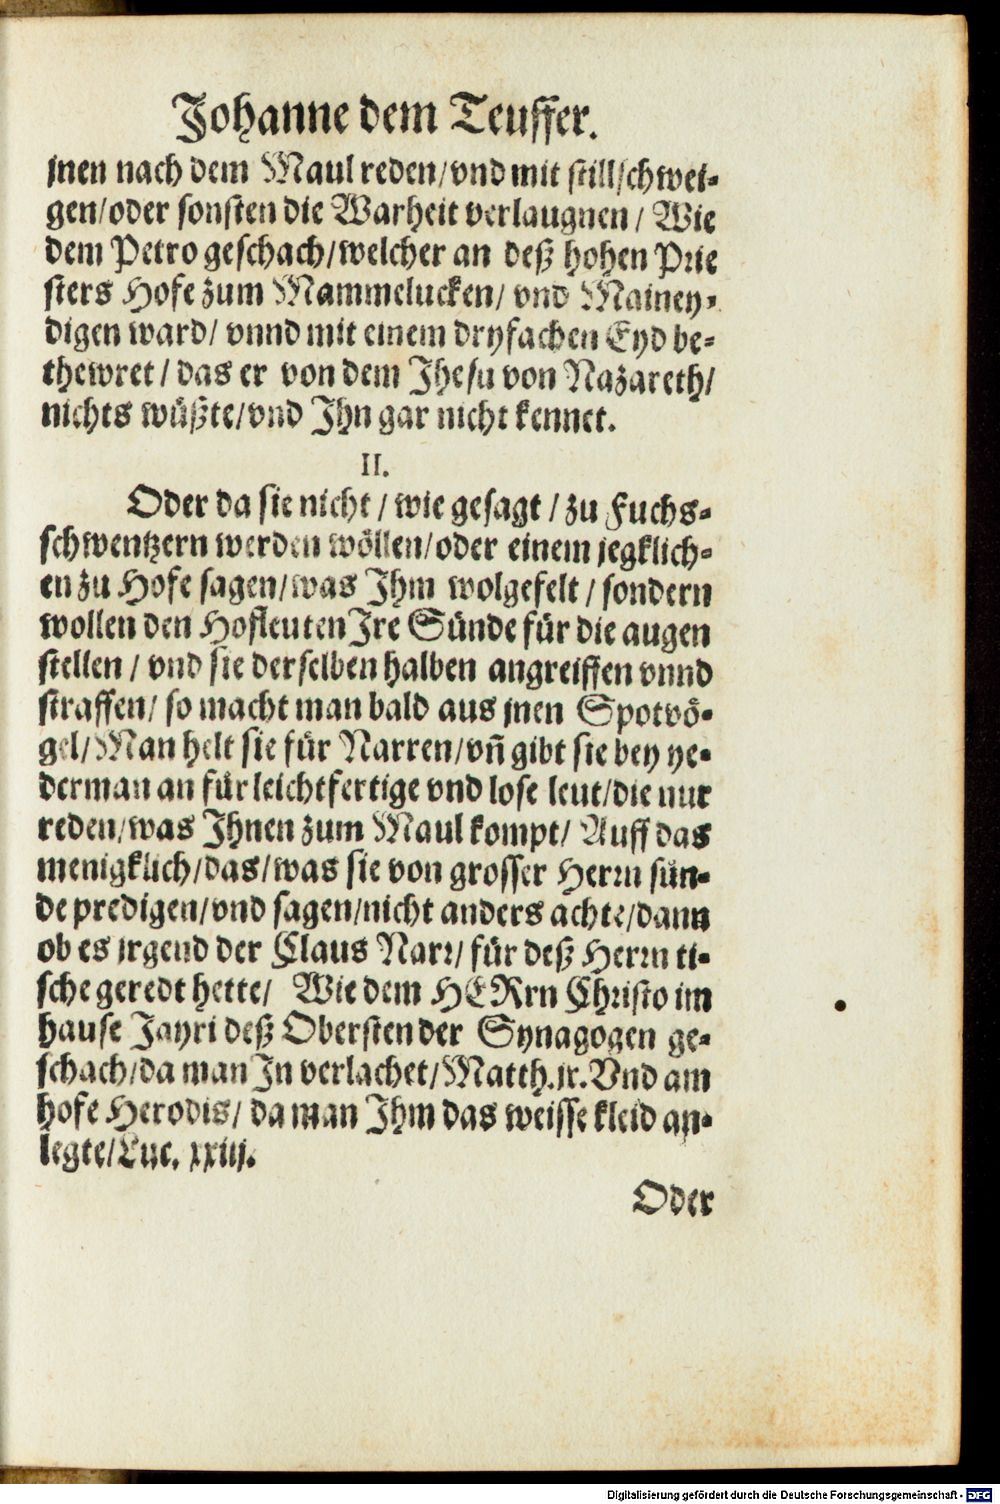 Johanne dem Teuffer.
jnen nach dem Maul reden/vnd mit stillschwei-
gen/oder sonsten die Warheit verlaugnen/ Wie
dem Petro geschach/welcher an deß hohen Prie
sters Hofe zum Mammelucken/ vnd Mainey-
digen ward/ vnnd mit einem dryfachen Eyd be-
thewret/ das er von dem Jhesu von Nazareth/
nichts wüßte/vnd Jhn gar nicht kennet.
II.
Oder da sie nicht/ wie gesagt/ zu Fuchs-
schwentzern werden wöllen/oder einem jegklich-
en zu Hofe sagen/was Jhm wolgefelt/ sondern
wollen den Hofleuten Jre Sünde für die augen
stellen/ vnd sie derselben halben angreiffen vnnd
straffen/ so macht man bald aus jnen Spotvö-
gel/Man helt sie für Narren/vn̄ gibt sie bey ye-
derman an für leichtfertige vnd lose leut/die nur
reden/was Jhnen zum Maul kompt/ Auff das
menigklich/das/was sie von grosser Herrn sün-
de predigen/vnd sagen/nicht anders achte/dann
ob es jrgend der Claus Narr/ für deß Herrn ti-
sche geredt hette/ Wie dem HERrn Christo im
hause Jayri deß Obersten der Synagogen ge-
schach/da man Jn verlachet/Matth.ix.Vnd am
hofe Herodis/ da man Jhm das weisse kleid an-
legte/Luc. xxiij.
Oder
Digitalisierung gefördert durch die Deutsche Forschungsgemeinschaft - DFG